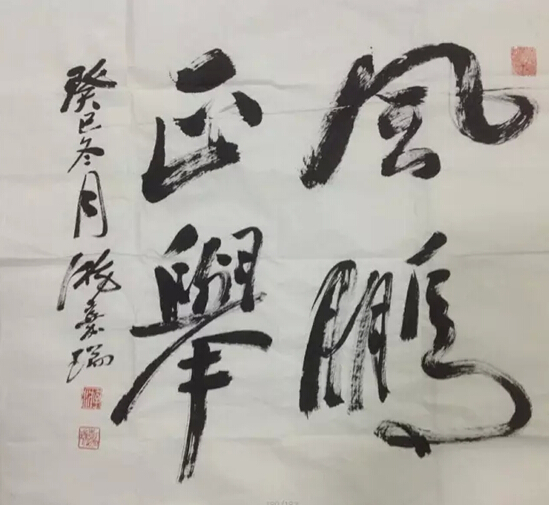 風鵬
正舉
癸巳冬月 嘉瑞